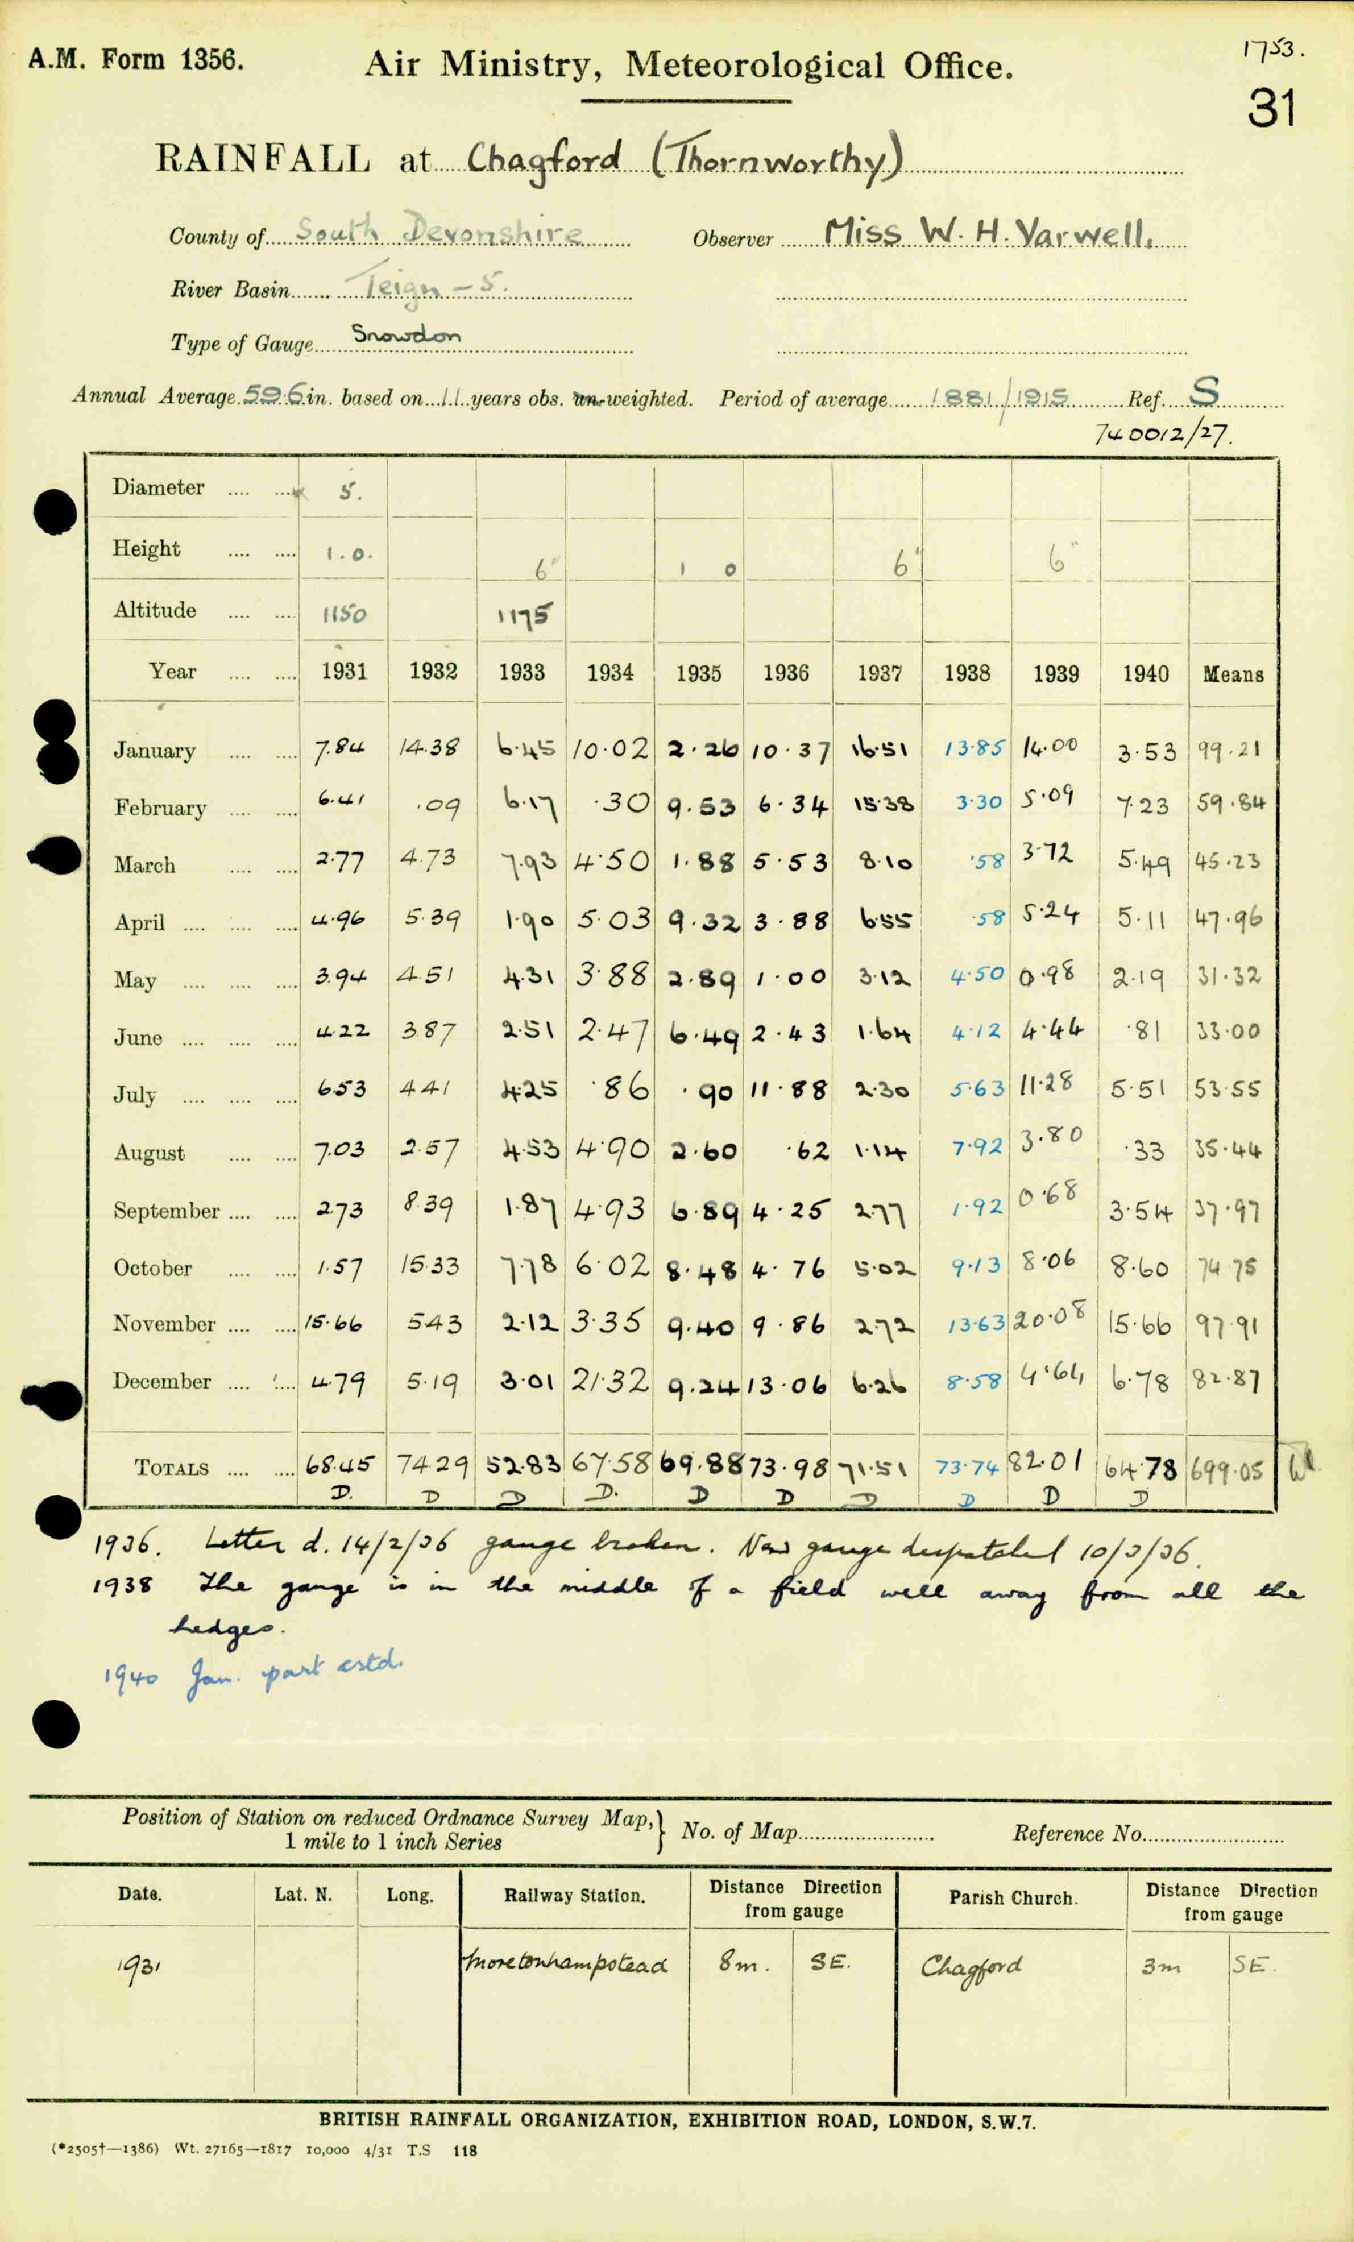 1753.
A.M. Form 1356. Air Ministry, Meteorological Office.
31
RAINFALL at Chagford (Thornworthy)
County of South Devonshire Observer Miss W. H. Varwell.
River Basin Teign - 5.
Type of Gauge Snowdon
Annual Average 59.6 in. based on 11 years obs. un-weighted. Period of average 1881/1915 Ref. S
740012/27.
Diameter .... .... 5.
Height .... .... 1.0. 6" 1 0 6" 6"
Altitude .... .... 1150 1175
Year .... .... 1931 1932 1933 1934 1935 1936 1937 1938 1939 1940 Means
January .... .... 7.84 14.38 6.45 10.02 2.26 10.37 16.51 13.85 14.00 3.53 99.21
February .... .... 6.41 .09 6.17 .30 9.53 6.34 15.38 3.30 5.09 7.23 59.84
March .... .... 2.77 4.73 7.93 4.50 1.88 5.53 8.10 .58 3.72 5.49 45.23
April .... .... .... 4.96 5.39 1.90 5.03 9.32 3.88 6.55 .58 5.24 5.11 47.96
May .... .... .... 3.94 4.51 4.31 3.88 2.89 1.00 3.12 4.50 0.98 2.19 31.32
June .... .... .... 4.22 3.87 2.51 2.47 6.49 2.43 1.64 4.12 4.44 .81 33.00
July .... .... .... 6.53 4.41 4.25 .86 .90 11.88 2.30 5.63 11.28 5.51 53.55
August .... .... 7.03 2.57 4.53 4.90 2.60 .62 1.14 7.92 3.80 .33 35.44
September .... .... 2.73 8.39 1.87 4.93 6.89 4.25 2.77 1.92 0.68 3.54 37.97
October .... .... 1.57 15.33 7.78 6.02 8.48 4.76 5.02 9.13 8.06 8.60 74.75
November .... .... 15.66 5.43 2.12 3.35 9.40 9.86 2.72 13.63 20.08 15.66 97.91
December .... .... 4.79 5.19 3.01 21.32 9.24 13.06 6.26 8.58 4.64 6.78 82.87
TOTALS .... .... 68.45 74.29 52.83 67.58 69.88 73.98 71.51 73.74 82.01 64.78 699.05
D. D D D. D D D D D D
1936. Letter d. 14/2/36 gauge broken. New gauge despatched 10/3/36.
1938 The gauge is in the middle of a field well away from all the
hedges.
1940 Jan. part estd.
Position of Station on reduced Ordnance Survey Map,} No. of Map Reference No.
1 mile to 1 inch Series
Date. Lat. N. Long. Railway Station. Distance Direction from gauge Parish Church. Distance Direction from gauge
1931 Moretonhampstead 8m. SE. Chagford 3m SE.
BRITISH RAINFALL ORGANIZATION, EXHIBITION ROAD, LONDON, S.W.7.
(*2505†—1386) Wt. 27165—1817 10,000 4/31 T.S 118